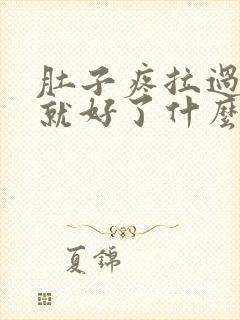 肚子疼拉過
就好了什麼
夏錦